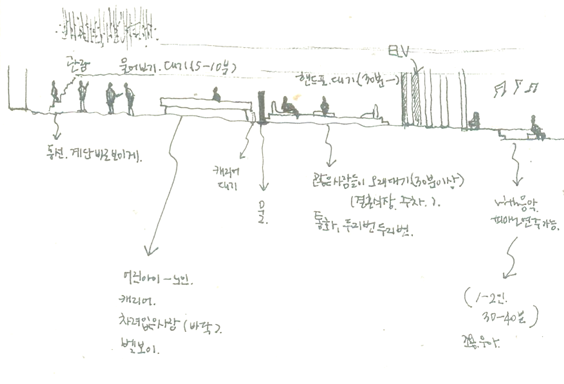 관광
물어보기. 대기 (5-10분)
핸드폰. 대기 (30분→)
ELV
동선. 계단 바로 보이게.
캐리어
대기
많은사람들이 오래대기(30분이상)
(결혼식장. 주차. ).
통화, 두리번 두리번.
with 음악.
피아노 연주가능.
어린아이 - 노인.
캐리어.
차려입은사람 (바닥).
벨보이.
(1-2인.
30-40분)